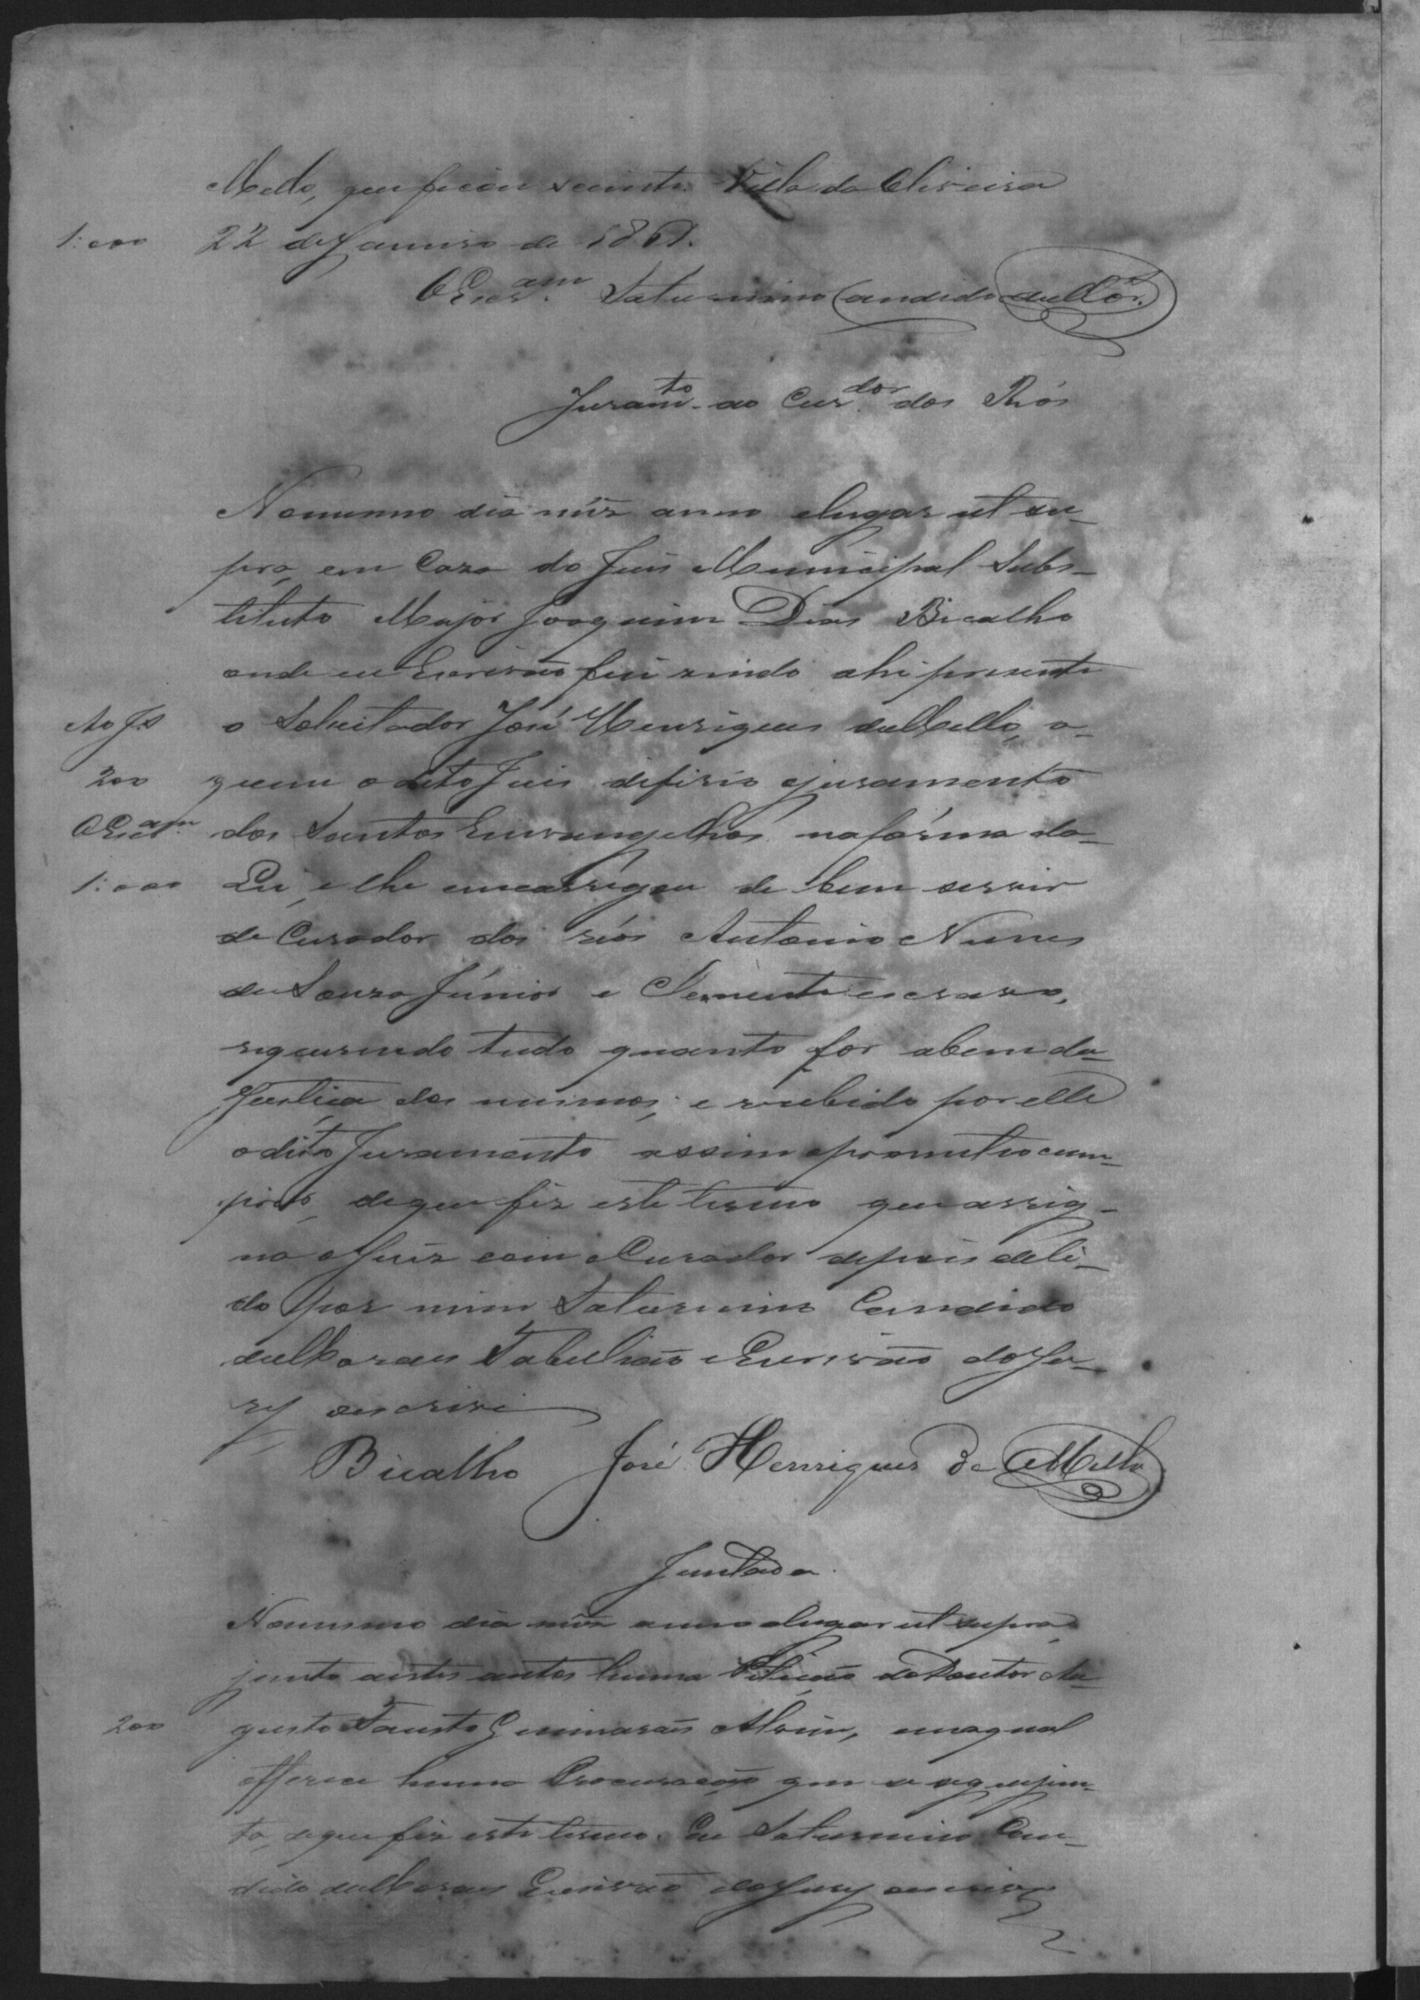 Mello, que ficou sciente. Villa da Oliveira
1:000 22 de Janeiro de 1861.
O Escr.am Saturnino Candido de Mor.
Juram.to ao Cur.dor dos Réos
No mesmo dia mêz anno e lugar ut su-
pra, em Caza do Juis Municipal Subs-
tituto Major Joaquim Dias Bicalho
onde eu Escrivão fui vindo ahi presente
Ao J.s o Solicitador José Henriques de Mello, a
200 quem o dito Juis difirio o juramento
O Escr.am dos Santos Euvangelhos na fórma da
1:000 Lei, e lhe encarrégou de bem servir
de Curador dos réos Antonio Nunes
de Souza Júnior e Clemente escravo,
requerendo tudo quanto for a bem da
Justiça dos mesmos; e recebido por elle
o dito Juramento assim o prometteo cum-
prir, de que fiz este termo que assig-
na o Juiz com o Curador depois de li-
do por mim Saturnino Candido
de Moraes Tabellião e Escrivão do Ju-
ry escrivi
Bicalho José Henriques de Mello
Juntada
No mesmo dia mêz anno e lugar ut supra
junto a estes autos huma Petição do Doutor Au-
200 gusto Fausto Guimarães Alvim, em a qual
offerece huma Procuração que se segue jun-
ta, de que fiz este termo. Eu Saturnino Can-
dido de Moraes Escrivão do Jury escrivi